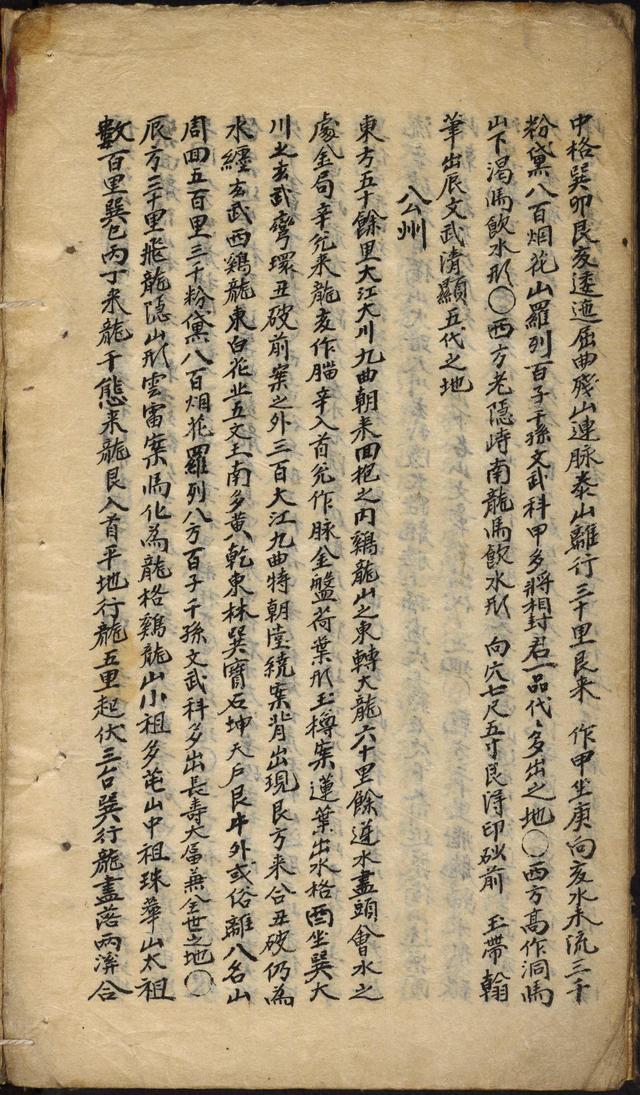 中格巽卯艮亥逶迤屈曲殘山連脉泰山離行三十里艮來 作甲坐庚向亥水來流三千
粉黛八百烟花山羅列百子千孫文武科甲多將相封君一品代〻多出之地〇西方髙作洞馬
山下渴馬飮水形〇西方老隱峙南龍馬飮水形 向穴七尺五寸艮淂印砂前 玉帶翰
筆出辰文武清顯五代之地
公州
東方五十餘里大江大川九曲朝來回抱之内鷄龍山之東轉大龍六十里餘逆水盡頭會水之
處金局辛兊來龍亥作腦辛入首兊作脉金盤荷葉形玉樽案蓮葉出水格酉坐巽大
川之玄武彎環丑破前案之外三百大江九曲特朝堂繞案背出現艮方來合丑破仍為
水纏玄武西鷄龍東白花北五文王南多黄乾東林巽寶石坤天戶艮牛外或俗離八名山
周回五百里三千粉黛八百烟花羅列八方百子千孫文武科多出長壽大富兼全世之地〇
辰方三十里飛龍隱山形雲雷案馬化為龍格鷄龍山小祖多芚山中祖珠華山太祖
數百里巽巳丙丁來龍千態來龍艮入首平地行龍五里起伏三台巽行龍盡落两渀合